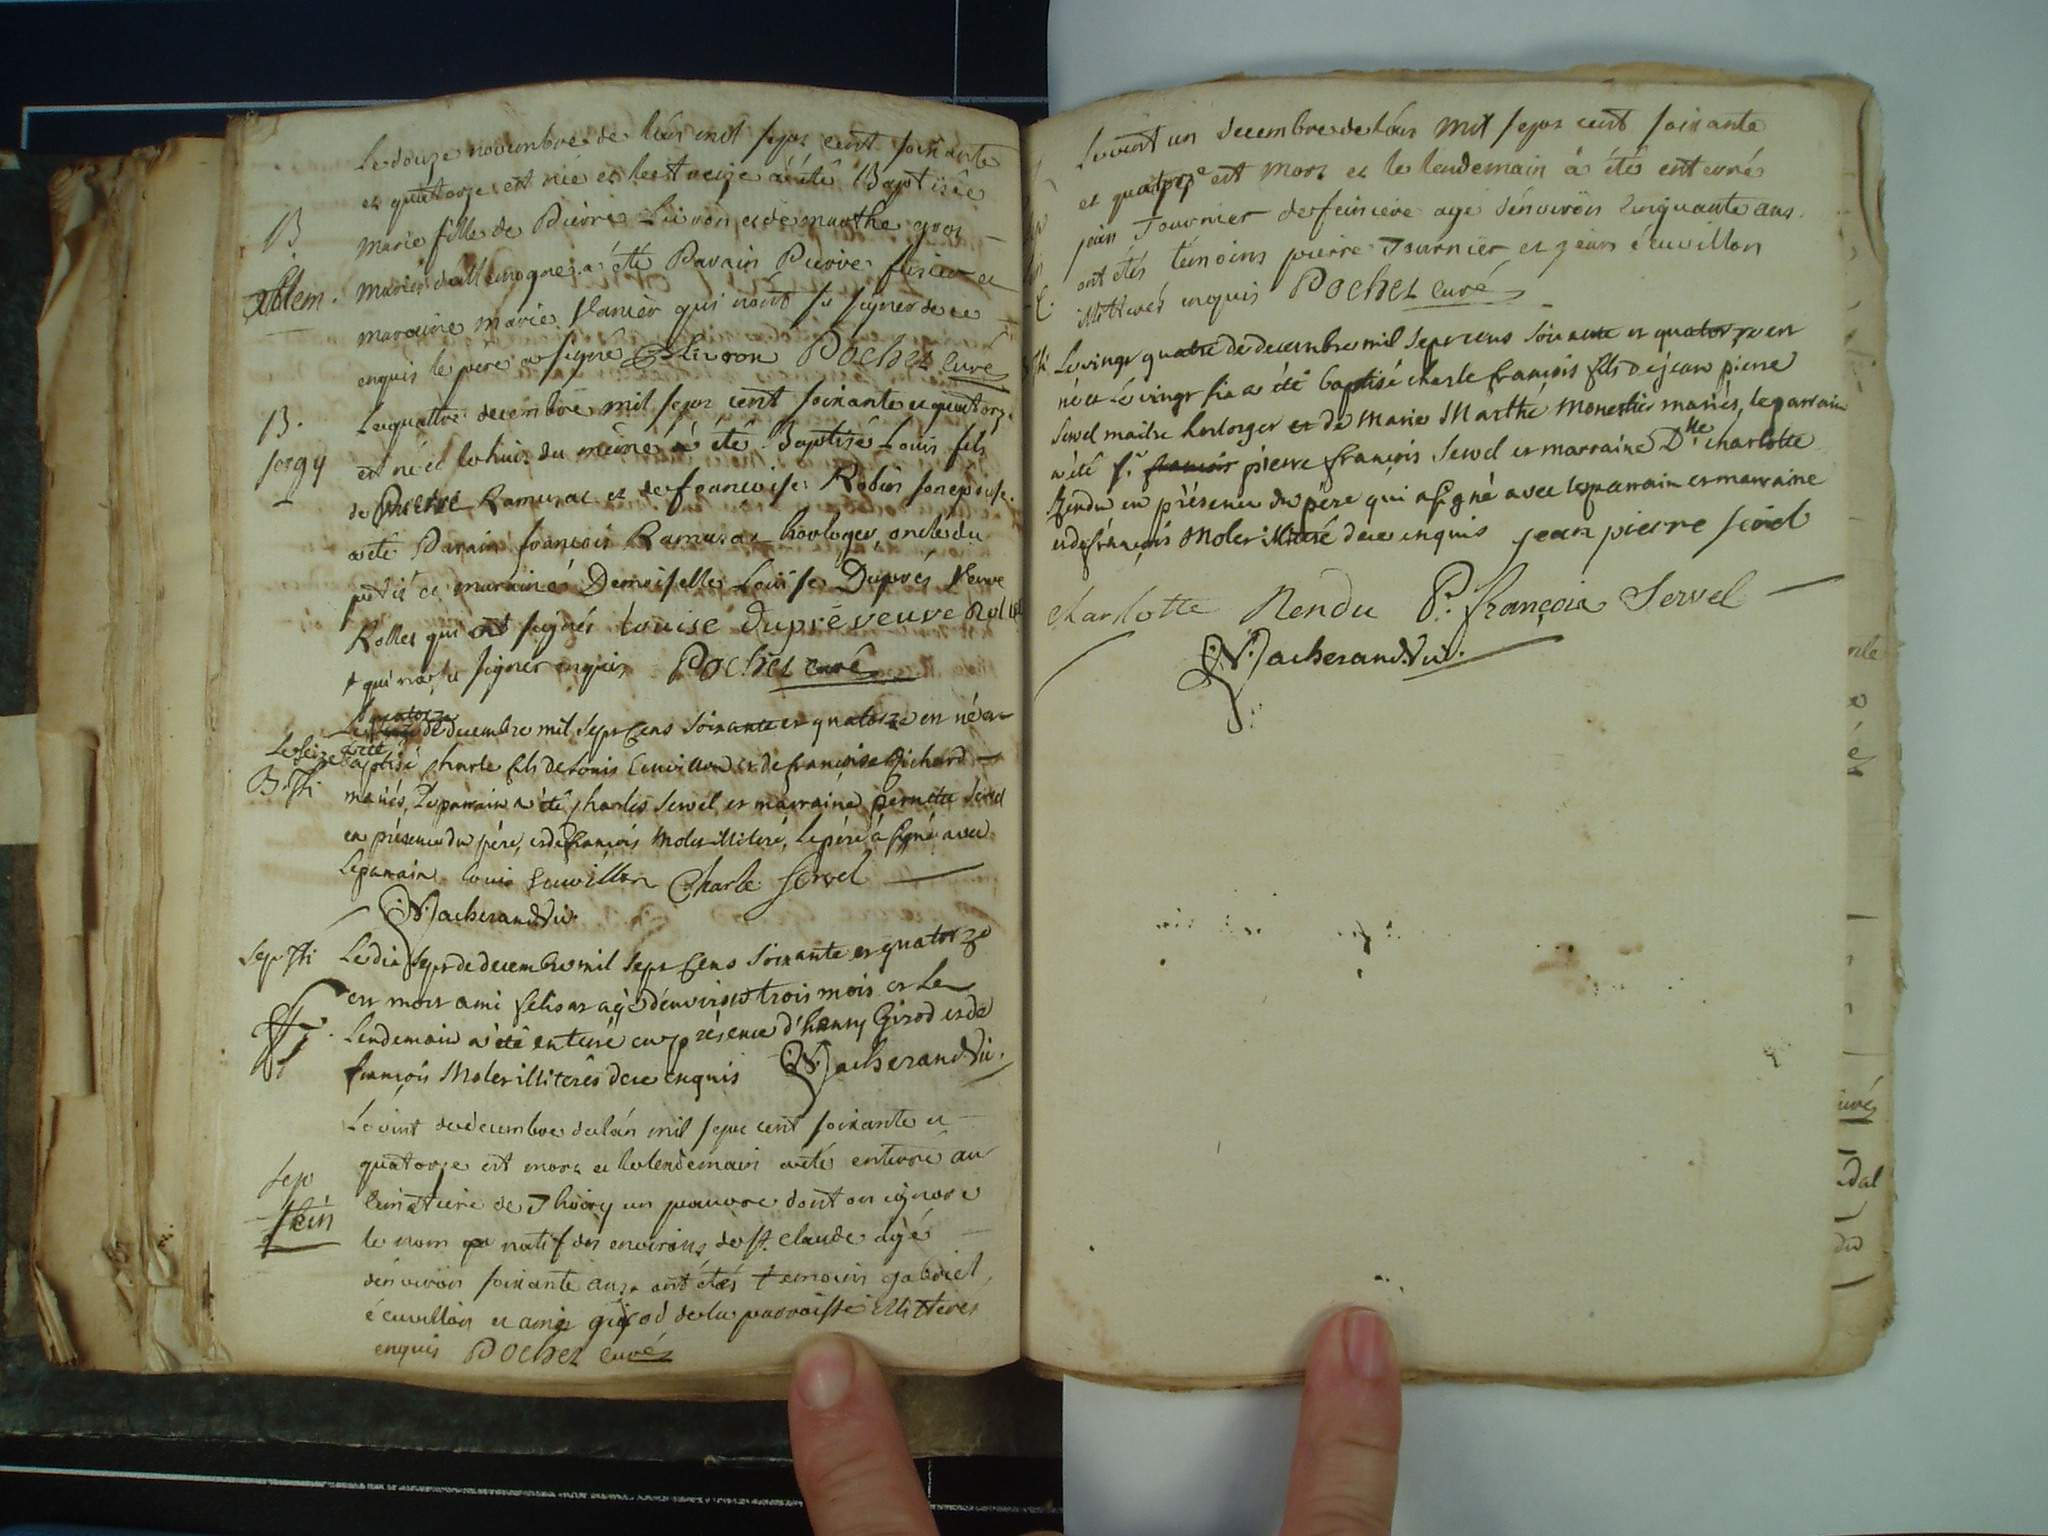 Le douze novembre de l'an mil sept cent soixante
et quatorze est née et le treize a été Baptisée
B
marie fille de Pierre Livron et de marthe gros
allem.
mariés d'allemogne a été Parain Pierre et
maraine marie qui n'ont su signer de ce
enquis le père a signé Livron Pochet curé
B.
Le quattre decembre mil sept cent soixante et quatorze
sergy
est né et le huit du même a été Baptisé Louis fils
de Pierre Ramusat et de francoise Robin son epouse
a été Parain françois Ramusat horloger, oncle du
petit et maraine Demoiselle Louise Duprés Veuve
Rolles qui ont signés louise dupré veuve
qui n'ont su signer enquis Pochet curé
quatorze
Le de decembre mil sept cens soixante et quatorze est né et
Le seize a été
baptisé charle fils de Louis Ecuvillon et de francoise Richard
B. Thi
mariés, Le parrain a été charles servel et marraine pernette servel
en présence du père, et de françois Moler illiteré, le père a signé avec
le parrain louis Ecuvillon Charle Servel
N. Jacherand Vic.
Sep Thi
Le dix sept de decembre mil sept cens soixante et quatorze
est mort ami agé d'environ trois mois et Le
Lendemain a été enterré en présence d'henry Girod et de
françois Moler illiterés de ce enquis N. Jacherand Vic.
Le vint de decembre de l'an mil sept cent soixante et
quatorze est mort et le lendemain a été enterré au
sep
cimetiere de Thoiry un pauvre dont on ignore
le nom natif des environs de st. claude agé
d'environ soixante ans ont étés temoins gabriel
écuvillon et ami girod de la parroisse illitterés
enquis Pochet curé
Le vint un decembre de l'an mil sept cent soixante
et quatorze est mort et le lendemain à été enterré
jean Fournier de feiniere agé d'environ cinquante ans
ont étés temoins pierre Fournier et jean écuvillon
illitterés enquis Pochet curé
Thi
Le vingt quatre de decembre mil sept cens soixante et quatorze est
né et Le vingt six a été baptisé charle françois fils de jean pierre
servel maitre horloger et de Marie Marthe Monestier mariés, le parrain
a été Sr. françois pierre françois Servel et marraine Dlle charlotte
Rendu en présence du père qui a signé avec le parrain et marraine
et de françois Moler illiteré de ce enquis jean pierre servel
charlotte Rendu P. françois Servel
N. Jacherand Vic.